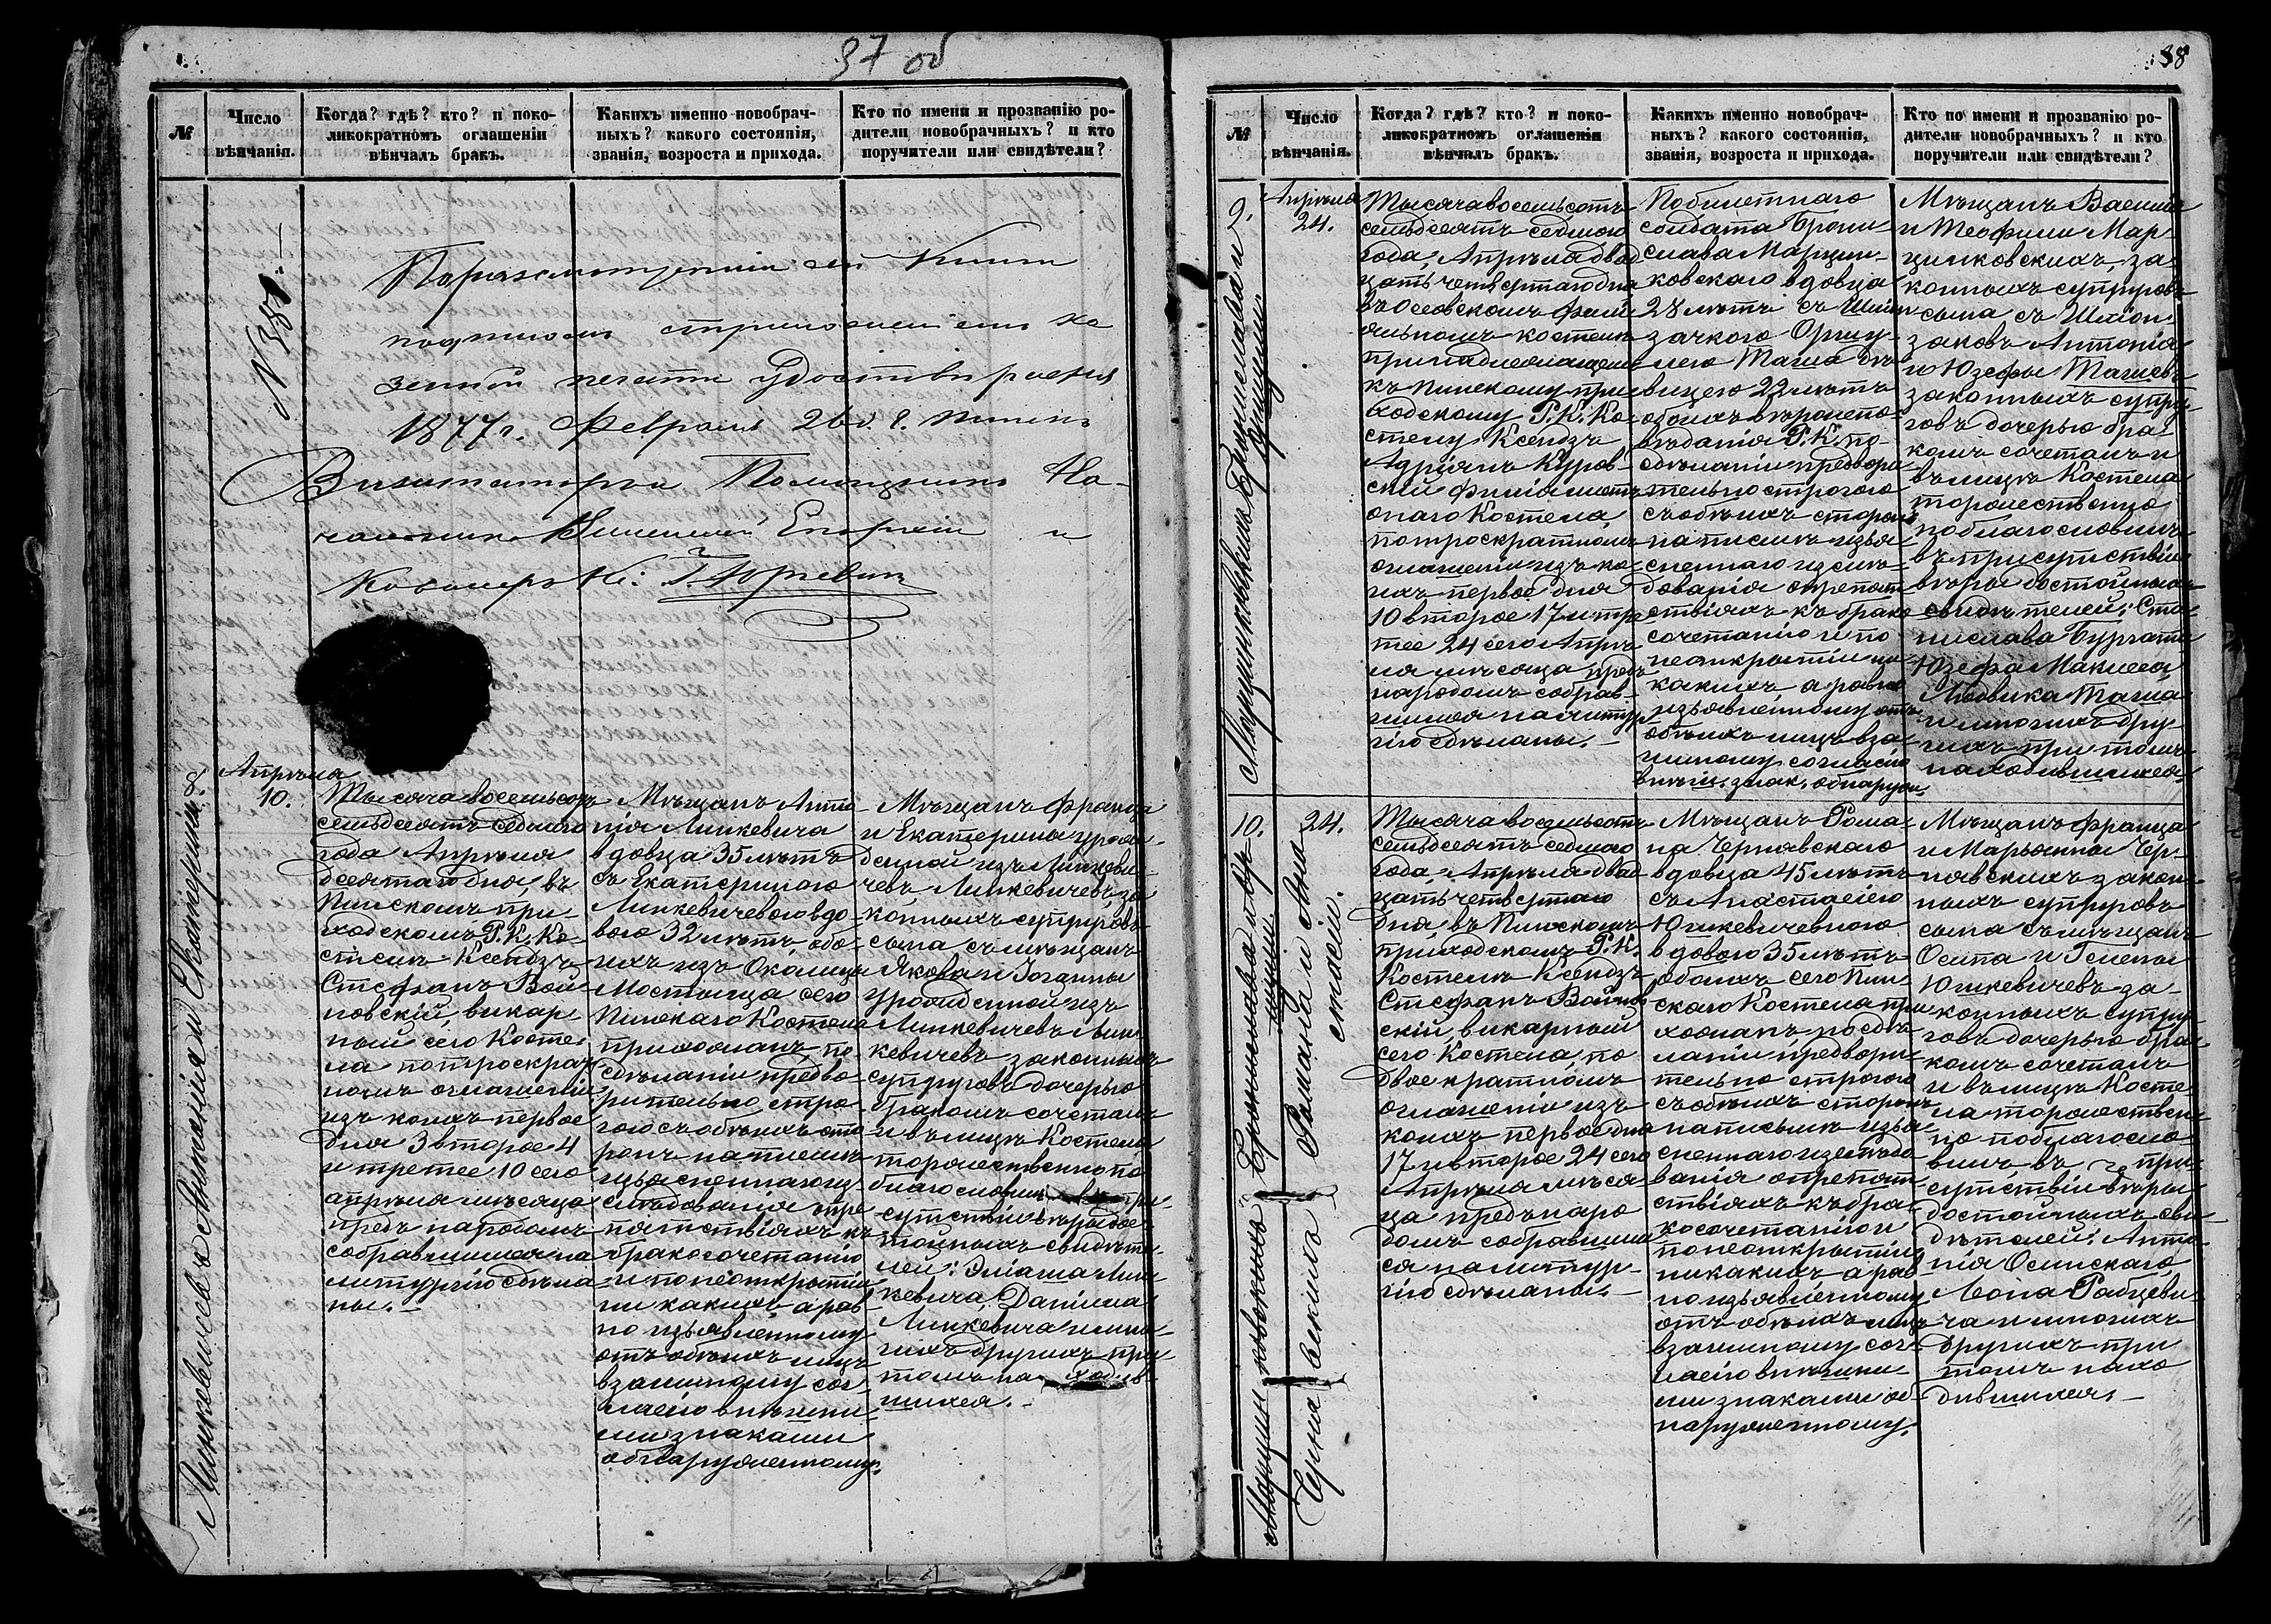 37 об
№
Число
вѣнчанія.
Когда? гдѣ? кто? и поко-
ликократномъ оглашеніи
вѣнчалъ бракъ.
Какихъ именно новобрач-
ныхъ? какого состоянія,
званія, возроста и прихода.
Кто по имени и прозванію ро-
дители новобрачныхъ? и кто
поручители или свидѣтели?
сей Книги
подписомъ
зенной печати
1877г. Февраля 26 д. г. Пинскъ
Епархіи и
Линкевичевъ Антонія и Екатерины
8.
Апрѣля
10.
Тысяча восемьсотъ
семьдесятъ седмаго
года Апрѣля
десятаго дня, въ
Пинскомъ при-
ходскомъ Р. К. Ко-
стелѣ Ксендзъ
Стефанъ Вой-
новскій, викар-
ный сего Косте-
ла по троекрат
номъ оглашеніи
изъ коихъ первое
дня 3 второе 4
и третее 10 сего
апрѣля мѣсяца
предъ народомъ
собравшимся на
литургію сдѣла
ны. —
Мѣщанъ Анто
нія Линкевича
вдовца 35 лѣтъ
съ Екатериною
Линкевичевою вдо-
вою 32 лѣтъ, обо-
ихъ изъ Околицы
Мостыща сего
Пинскаго Костела
прихожанъ по
сдѣланіи предва
рительно стро-
гого съ обѣихъ сто
ронъ на письмѣ
изъясненнаго из-
слѣдованія о пре
пятствіяхъ къ
бракосочетанію
и по неоткрытіи
ни какихъ а рав-
но изъявленному
отъ обѣихъ лицъ
взаимному сог-
ласію внѣшни-
ми знаками
обнаруженному.
Мѣщанъ Франца
и Екатерины урож-
денной изъ Линкеви-
чевъ, Линкевичевъ за-
конныхъ супруговъ
сына съ мѣщанъ
Якова и Іоганны
урожденной изъ
Линкевичевъ Лин-
кевичевъ законныхъ
супруговъ дочерью
бракомъ сочеталъ
и въ лицѣ Костела
торжественно по
благословилъ въ при-
сутствіи вѣры дос-
тойныхъ свидѣте-
лей: Эліаша Лин-
кевича, Даніила
Линкевича и мно-
гихъ другихъ при
томъ находив-
шихся. —
38
№
Число
вѣнчанія.
Когда? гдѣ? кто? и поко-
ликократномъ оглашеніи
вѣнчалъ бракъ.
Какихъ именно новобрач-
ныхъ? какого состоянія,
званія, возроста и прихода.
Кто по имени и прозванію ро-
дители новобрачныхъ? и кто
поручители или свидѣтели?
9.
Апрѣля
24.
Тысяча восемьсотъ
семьдесятъ седмаго
года, Апрѣля двад
цать четвертаго дня
въ Осовскомъ фили
альномъ костелѣ
принадлежащемъ
къ Пинскому при
ходскому Р. К. Ко-
стелу Ксендзъ
Адріянъ Куров-
скій филіялистъ
онаго Костела,
по троекратномъ
оглашеніи изъ ко-
ихъ первое дня
10 второе 17 и тре
тее 24 сего Апрѣ
ля мѣсяца предъ
народомъ собрав-
шимся на литур-
гію сдѣланы. —
Побилетнаго
солдата Брони
слава Марцин-
ковскаго вдовца
28 лѣтъ съ
22 лѣтъ
обоихъ вѣроиспо-
вѣданія Р. К. по
сдѣланіи предвари-
тельно строгого
съ обѣихъ сторонъ
на письмѣ изъя
сненнаго изслѣ-
дованія о препят
ствіяхъ къ брако
сочетанію и по
неоткрытіи ни-
какихъ а равно
изъявленному отъ
обѣихъ лицъ вза-
имному согласію
внѣш. знак. обнаруж.
Мѣщанъ Василія
и Теофили Мар
цинковскихъ, за-
конныхъ супруговъ
сына съ Шлон-
заковъ Антонія
и Юзефы
законныхъ супру
говъ дочерью бра-
комъ сочеталъ и
въ лицѣ Костела
торжественно
поблагословилъ
въ присутствіи
вѣры достойныхъ
свидѣтелей: Ста-
нислава
Юзефа
Людвика
и многихъ дру-
гихъ при томъ
находившихся.
10.
24.
Романа и Ана
стасіи.
Тысяча восемьсотъ
семьдесятъ седмаго
года, Апрѣля двад
цать четвертаго
дня, въ Пинскомъ
приходскомъ Р. К.
Костелѣ Ксендзъ
Стефанъ Войнов
скій, викарный
сего Костела, по
двоекратномъ
оглашеніи изъ
коихъ первое дня
17 и второе 24 сего
Апрѣля мѣся
ца предъ наро
домъ собравшим
ся на литур-
гію сдѣланы. —
Мѣщанъ Рома-
на Чернявскаго
вдовца 45 лѣтъ
съ Анастасіею
Юшкевичевною
вдовою 35 лѣтъ
обоихъ сего Пин
скаго Костела при
хожанъ, по сдѣ
ланіи предвари-
тельно строгого
съ обѣихъ сторонъ
на письмѣ изъя
сненнаго изслѣдо
ванія о препят
ствіяхъ къ бра-
косочетанію и
по неоткрытіи
никакихъ, а рав-
но изъявленному
отъ обѣихъ лицъ
взаимному сог-
ласію внѣшни-
ми знаками об-
наруженному.
Мѣщанъ Франца
и Марьянны Чер-
нявскихъ закон
ныхъ супруговъ
сына съ мѣщанъ
Осипа и Гелены
Юшкевичевъ за-
конныхъ супру
говъ дочерью бра-
комъ сочеталъ
и въ лицѣ Косте-
ла торжествен-
но поблагосло-
вилъ въ при-
сутствіи вѣры
достойныхъ сви-
дѣтелей: Анто
нія Осинскаго,
Леона Рабцеви-
ча и многихъ
другихъ при
томъ нахо
дившихся. —